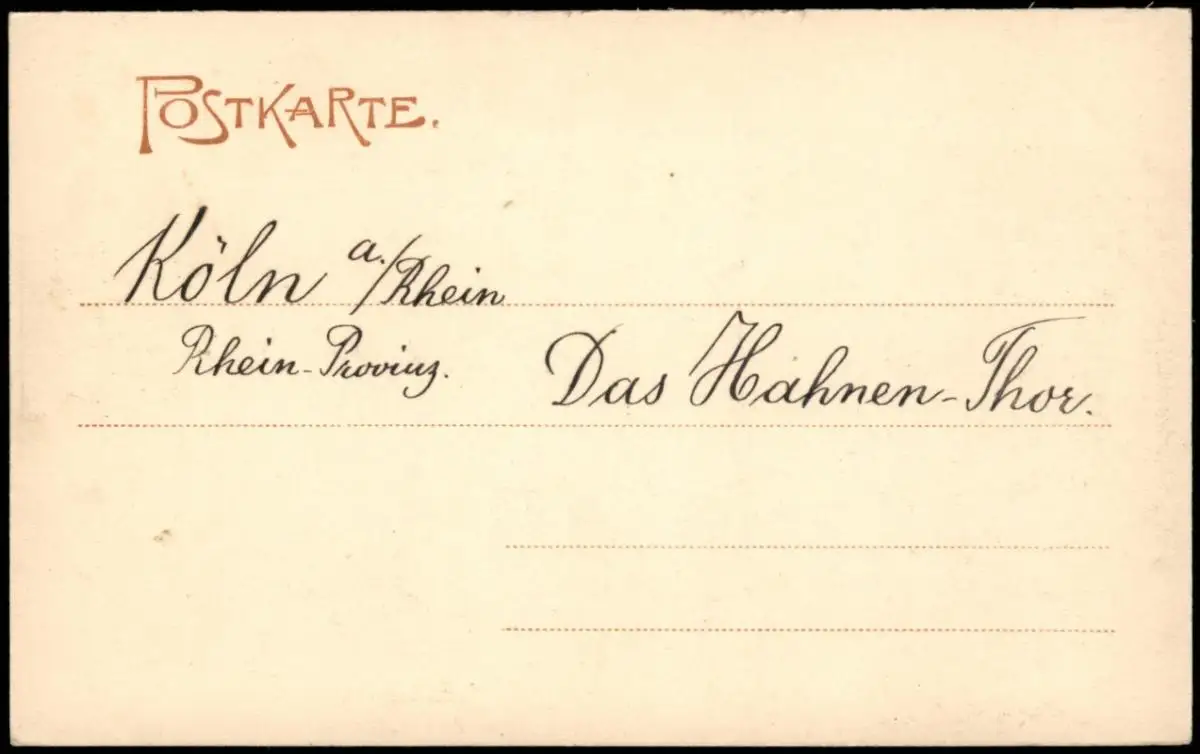 POSTKARTE.
Köln a./Rhein
Rhein-Provinz.
Das Hahnen-Thor.